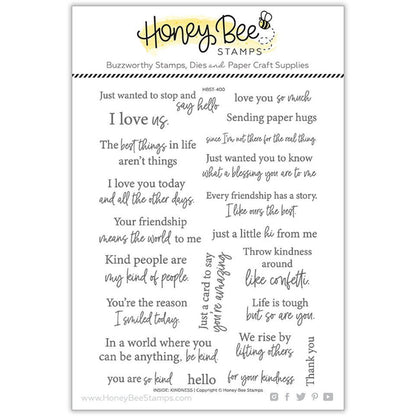 Honey Bee
STAMPS
Buzzworthy Stamps, Dies and Paper Craft Supplies
HBST-400
Just wanted to stop and
say hello
I love us.
The best things in life
aren't things
I love you today
and all the other days.
Your friendship
means the world to me
Kind people are
my kind of people.
You're the reason
I smiled today.
In a world where you
can be anything, be kind
you are so kind
hello
love you so much
Sending paper hugs
since I'm not there for the real thing
Just wanted you to know
what a blessing you are to me
Every friendship has a story.
I like ours the best.
just a little hi from me
Just a card to say
you're amazing
Throw kindness
around
like confetti.
Life is tough
but so are you.
We rise by
lifting others
for your kindness
Thank you
INSIDE: KINDNESS | Copyright © Honey Bee Stamps
www.HoneyBeeStamps.com